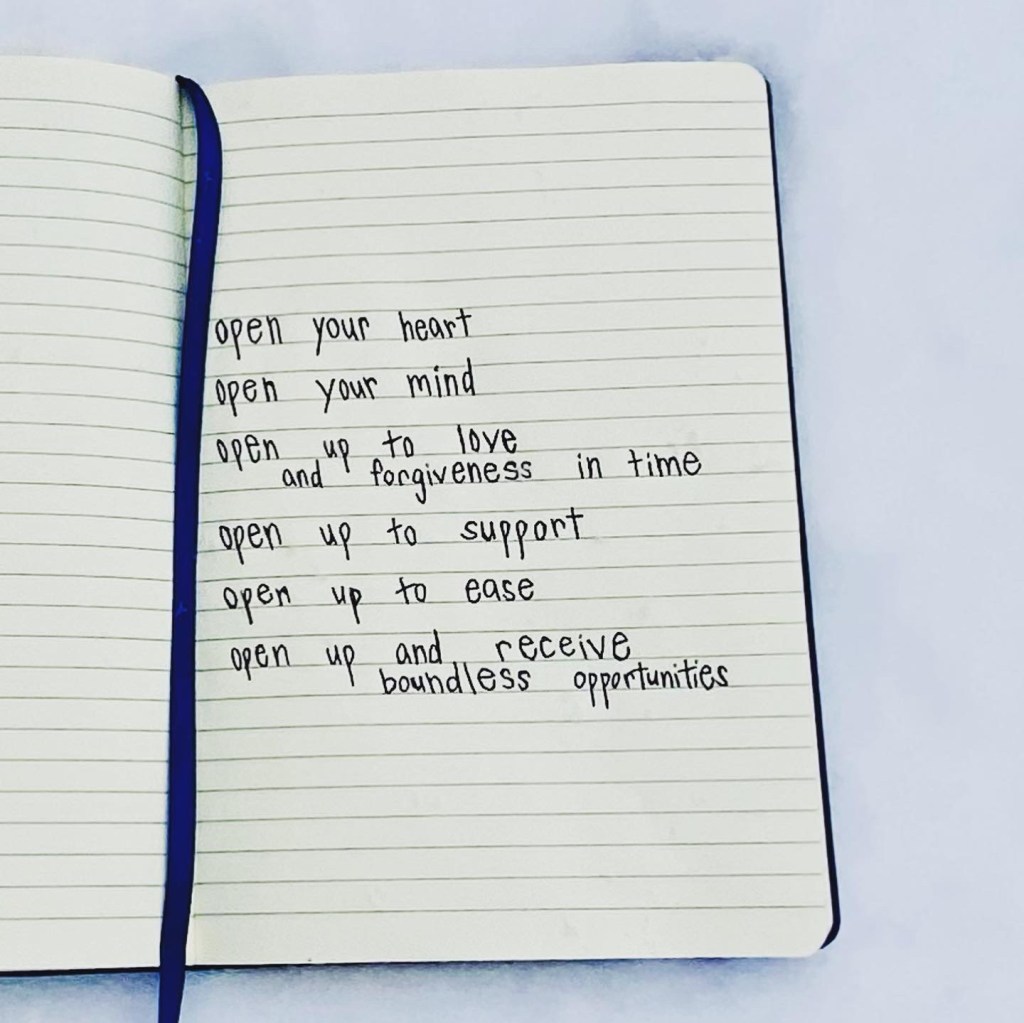 open your heart
open your mind
open up to love
and forgiveness in time
open up to support
open up to ease
open up and receive
boundless opportunities